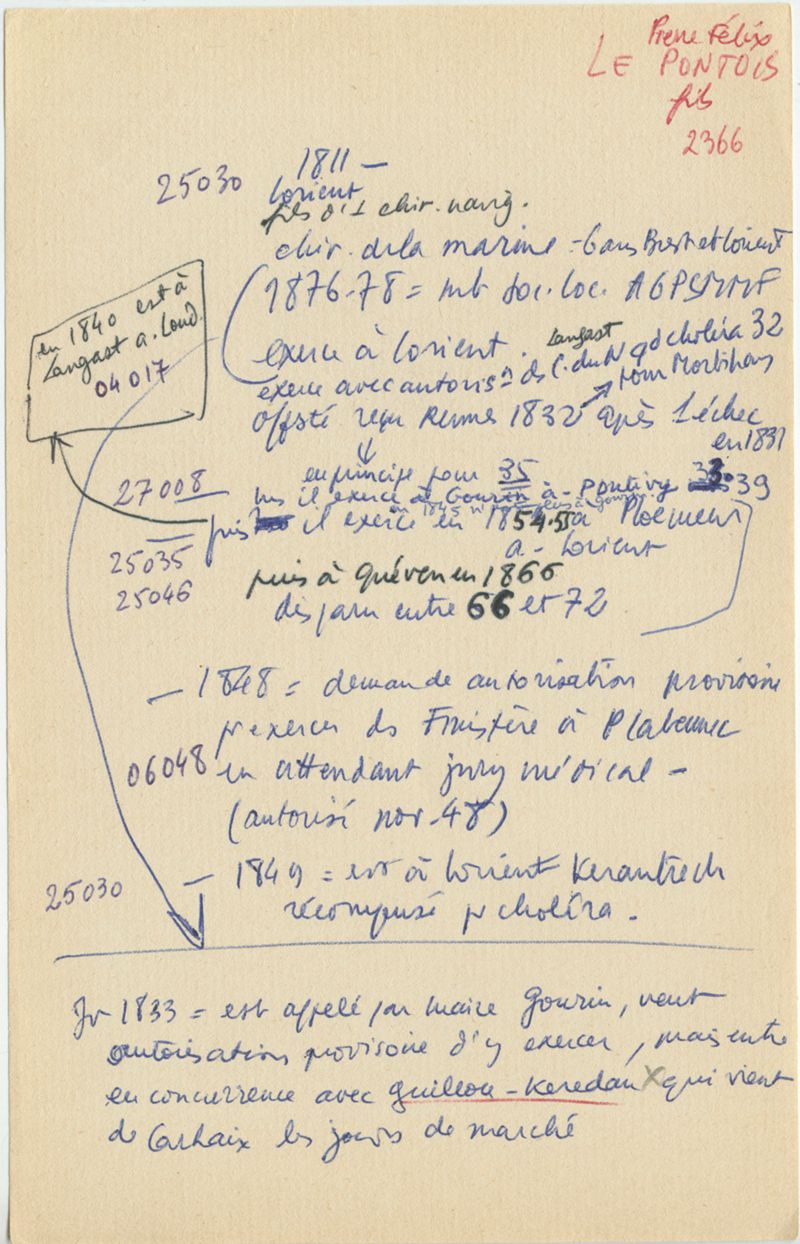 Pierre Félix
LE PONTOIS
fils
2366
25030 1811 -
Lorient
fils d'1 chir. navig.
chir. de la marine - 6 ans Brest et Lorient
1876-78 = mb soc. loc. AGPSMMF
exerce à Lorient. Langast qd choléra 32
exerce avec autorisn ds C. du N pour Morbihan
offsté reçu Rennes 1832 après 1 échec
en 1831
en 1840 est à
Langast a. Loud.
04017
en principe pour 35
27008 - ms il exerce à Gourin à - Pontivy 33.39
en 1845 n'est plus à Gourin
puis il exerce en 1854.55 à Ploemeur
25035 a - Lorient
25046 puis à Quéven en 1866
disparu entre 66 et 72
- 1848 = demande autorisation provisoire
pr exercer ds Finistère à Plabennec
06048 en attendant jury médical -
(autorisé nov. 48)
25030 - 1849 = est à Lorient Kerantrech
récompensé pr choléra.
Jr 1833 = est appelé par maire Gourin, veut
autorisation provisoire d'y exercer, mais entre
en concurrence avec Guillou-Keredan X qui vient
de Carhaix les jours de marché